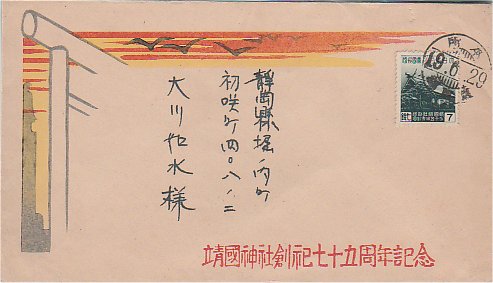 静岡縣堀ノ内町
初咲町四〇八ノ二
大川如水様
19.6.29
7
靖國神社創祀七十五周年記念